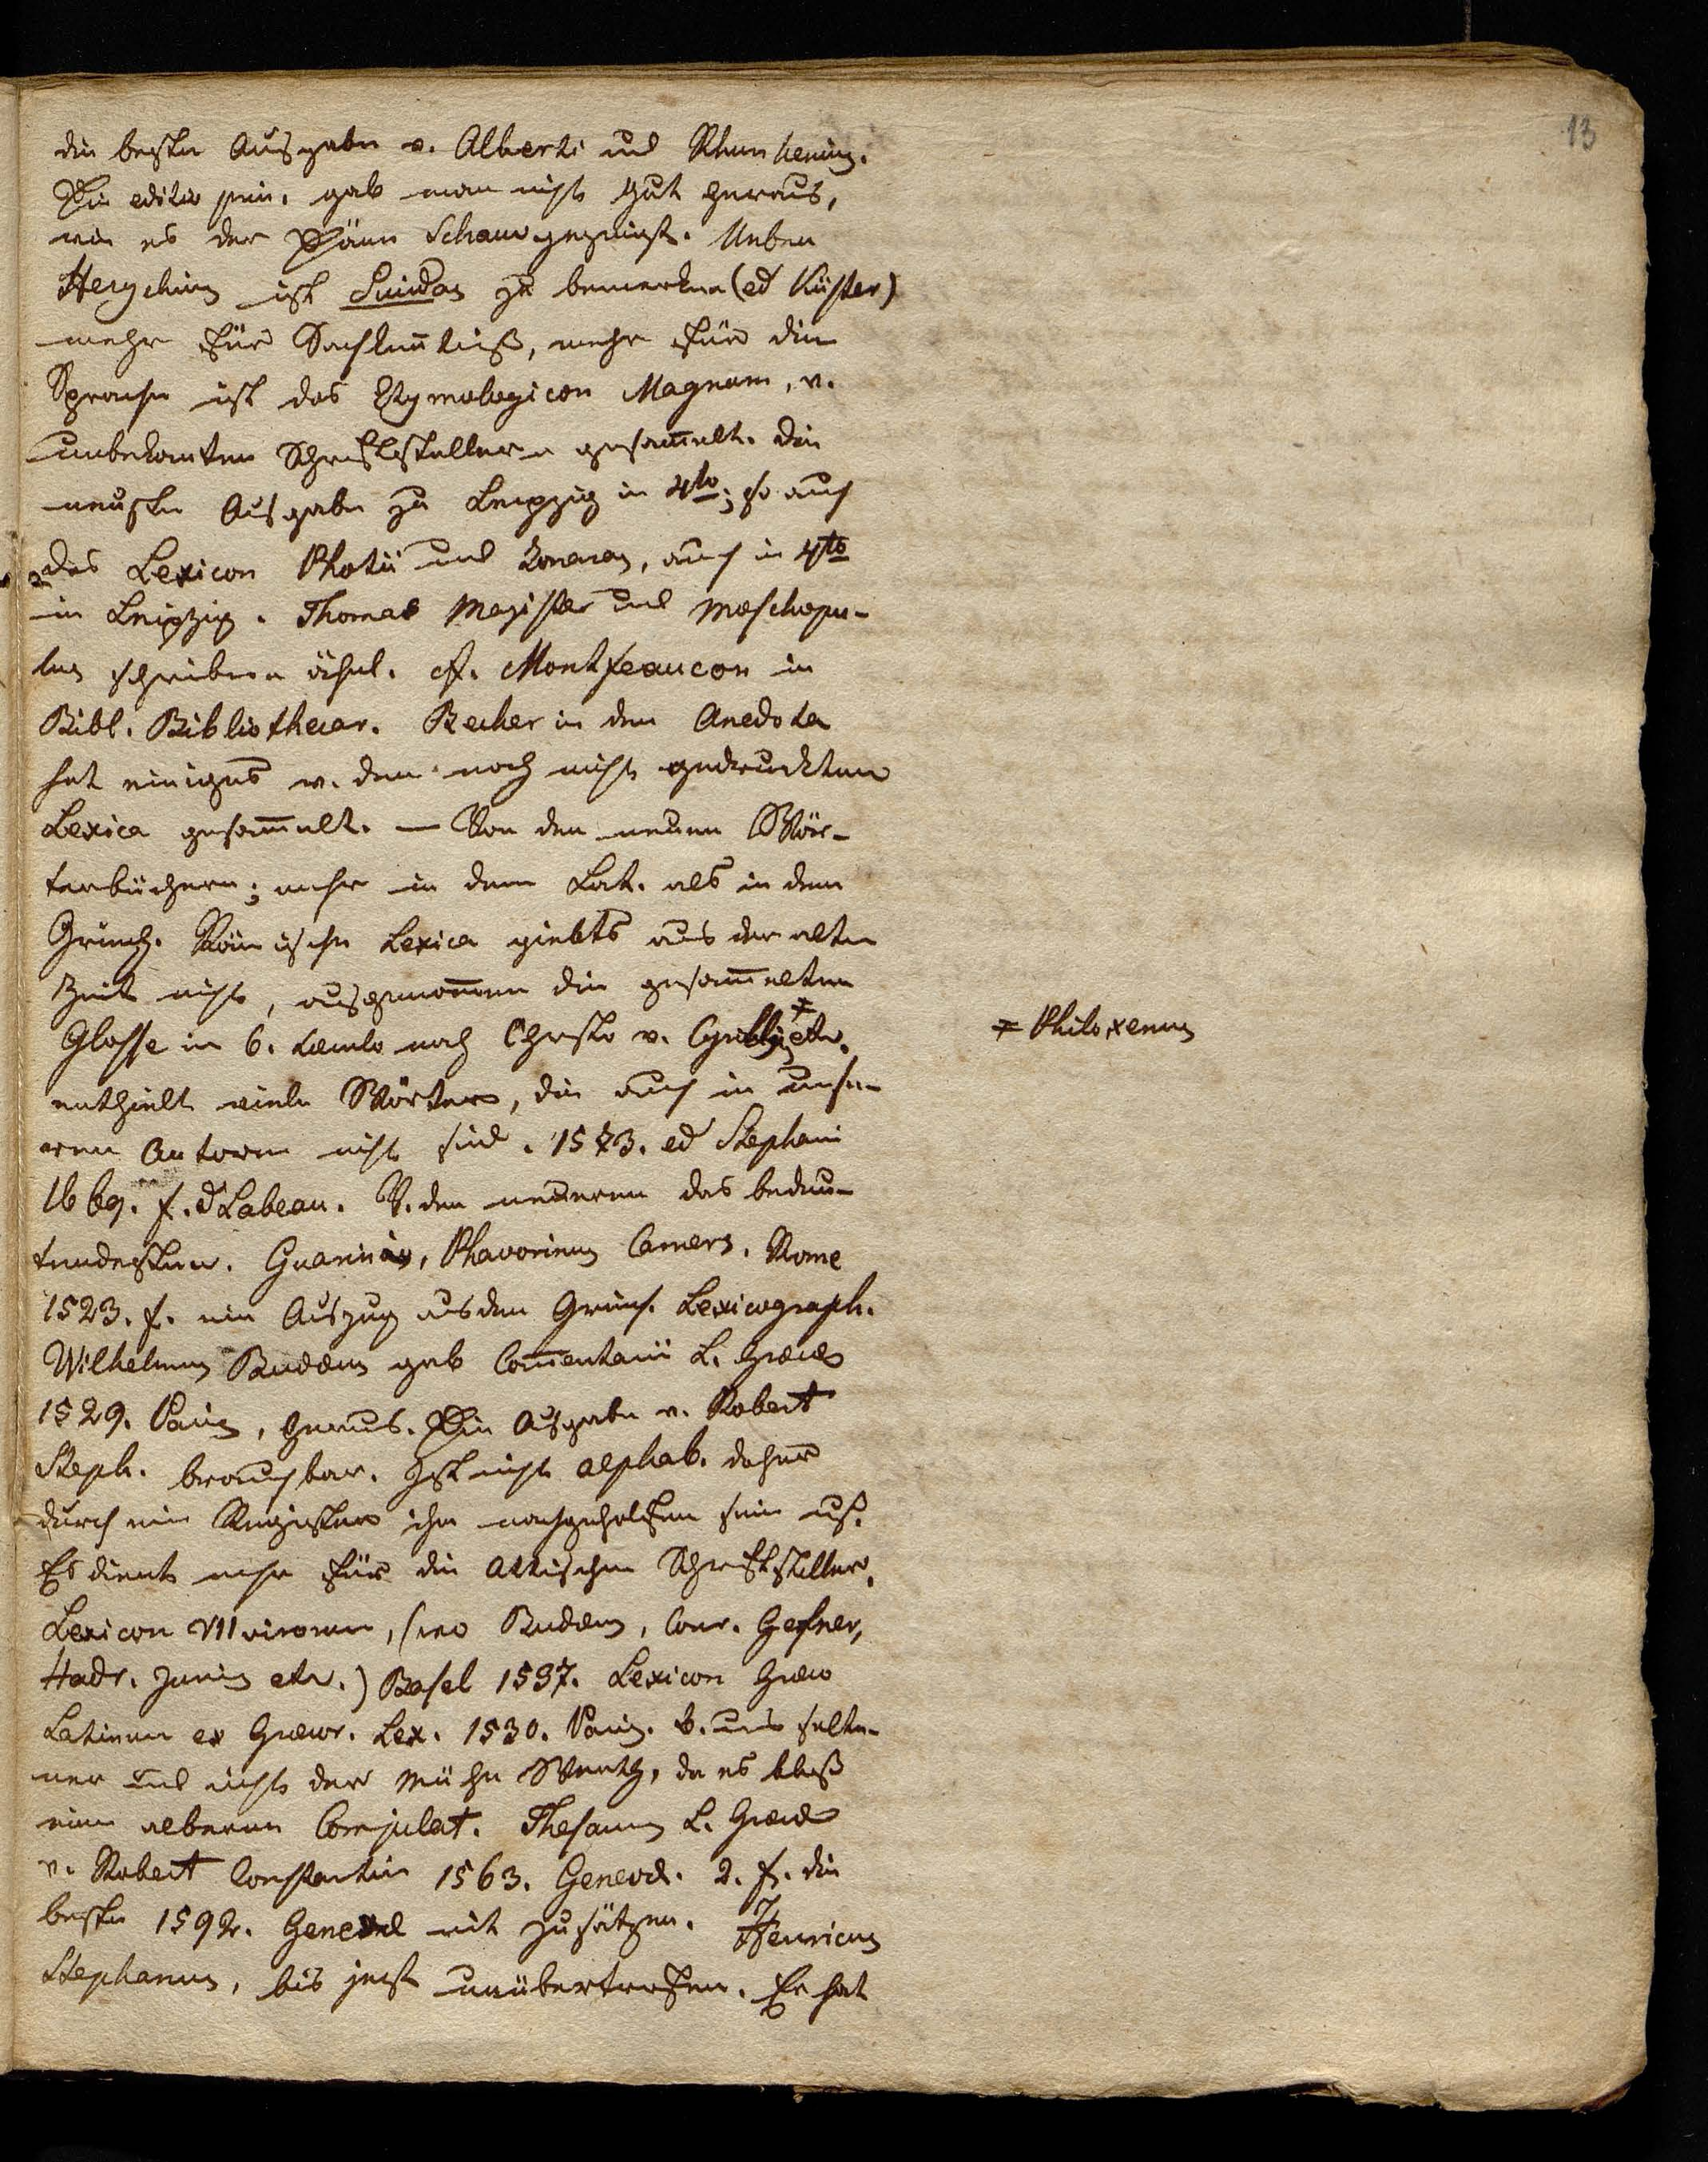 13
die beste Ausgabe v. Alberti und Rhunkenius.
Die editio prin. gab man nicht gut heraus,
wie es der Däne Schaw gezeigt. Neben
Hesychius ist Suidas zu bemerken (ed Küster)
mehr für Sachkentniß, mehr für die
Sprache ist das Etymologicon Magnum, v.
unbekanten Schriftstellern gesammelt. die
neuste Ausgabe zu Leipzig in 4to; so auch
das Lexicon Photii und Zonaras, auch in 4to
in Leipzig. Thomas Magister und Moschopu-
lus schreiben ähnl. cf. Montfaucon in
Bibl. Bibliothecar. Becker in den Anecdota
hat einiges v. den noch nicht gedruckten
Lexica gesammelt. — Von den neuen Wör-
terbüchern; mehr in dem Lat. als in dem
Griech. Römische Lexica giebts aus der alten
Zeit nicht, ausgenommen die gesammelten
Glosse in 6. Saeculo nach Christo v. Cyrillus ≠ etc.
≠ Philoxenus
enthielt viele Wörter, die auch in unse-
ren Autoren nicht sind. 1573. ed Stephani
1669. f. d Labeau. V. den neueren das bedeu-
tendesten. Guarinus, Phavorinus Camers. Rome
1523. f. ein Auszug aus den Griech. Lexicograph.
Wilhelmus Budaeus gab Commentarii L. Graecae
1529. Paris, heraus. Die Ausgabe v. Robert
Steph. brauchbar. Ist nicht alphab. daher
durch ein Register ihr nachgeholfen sein muß.
Es dient mehr für die Attischen Schriftsteller.
Lexicon VII virorum, (wo Budaeus, Conr. Gesner,
Hadr. Junius etc.) Basel 1537. Lexicon Graeco
Latinum ex Graecor. Lex. 1530. Paris. b. uns selte-
ner und nicht der Mühe Werth, da es bloß
eine alberne Compilat. Thesaurus L. Graecae
v. Robert Constantin 1563. Genevae. 2. f. die
beste 1592. Genevae mit Zusätzen. Henricus
Stephanus, bis jetzt unübertroffen. Er hat